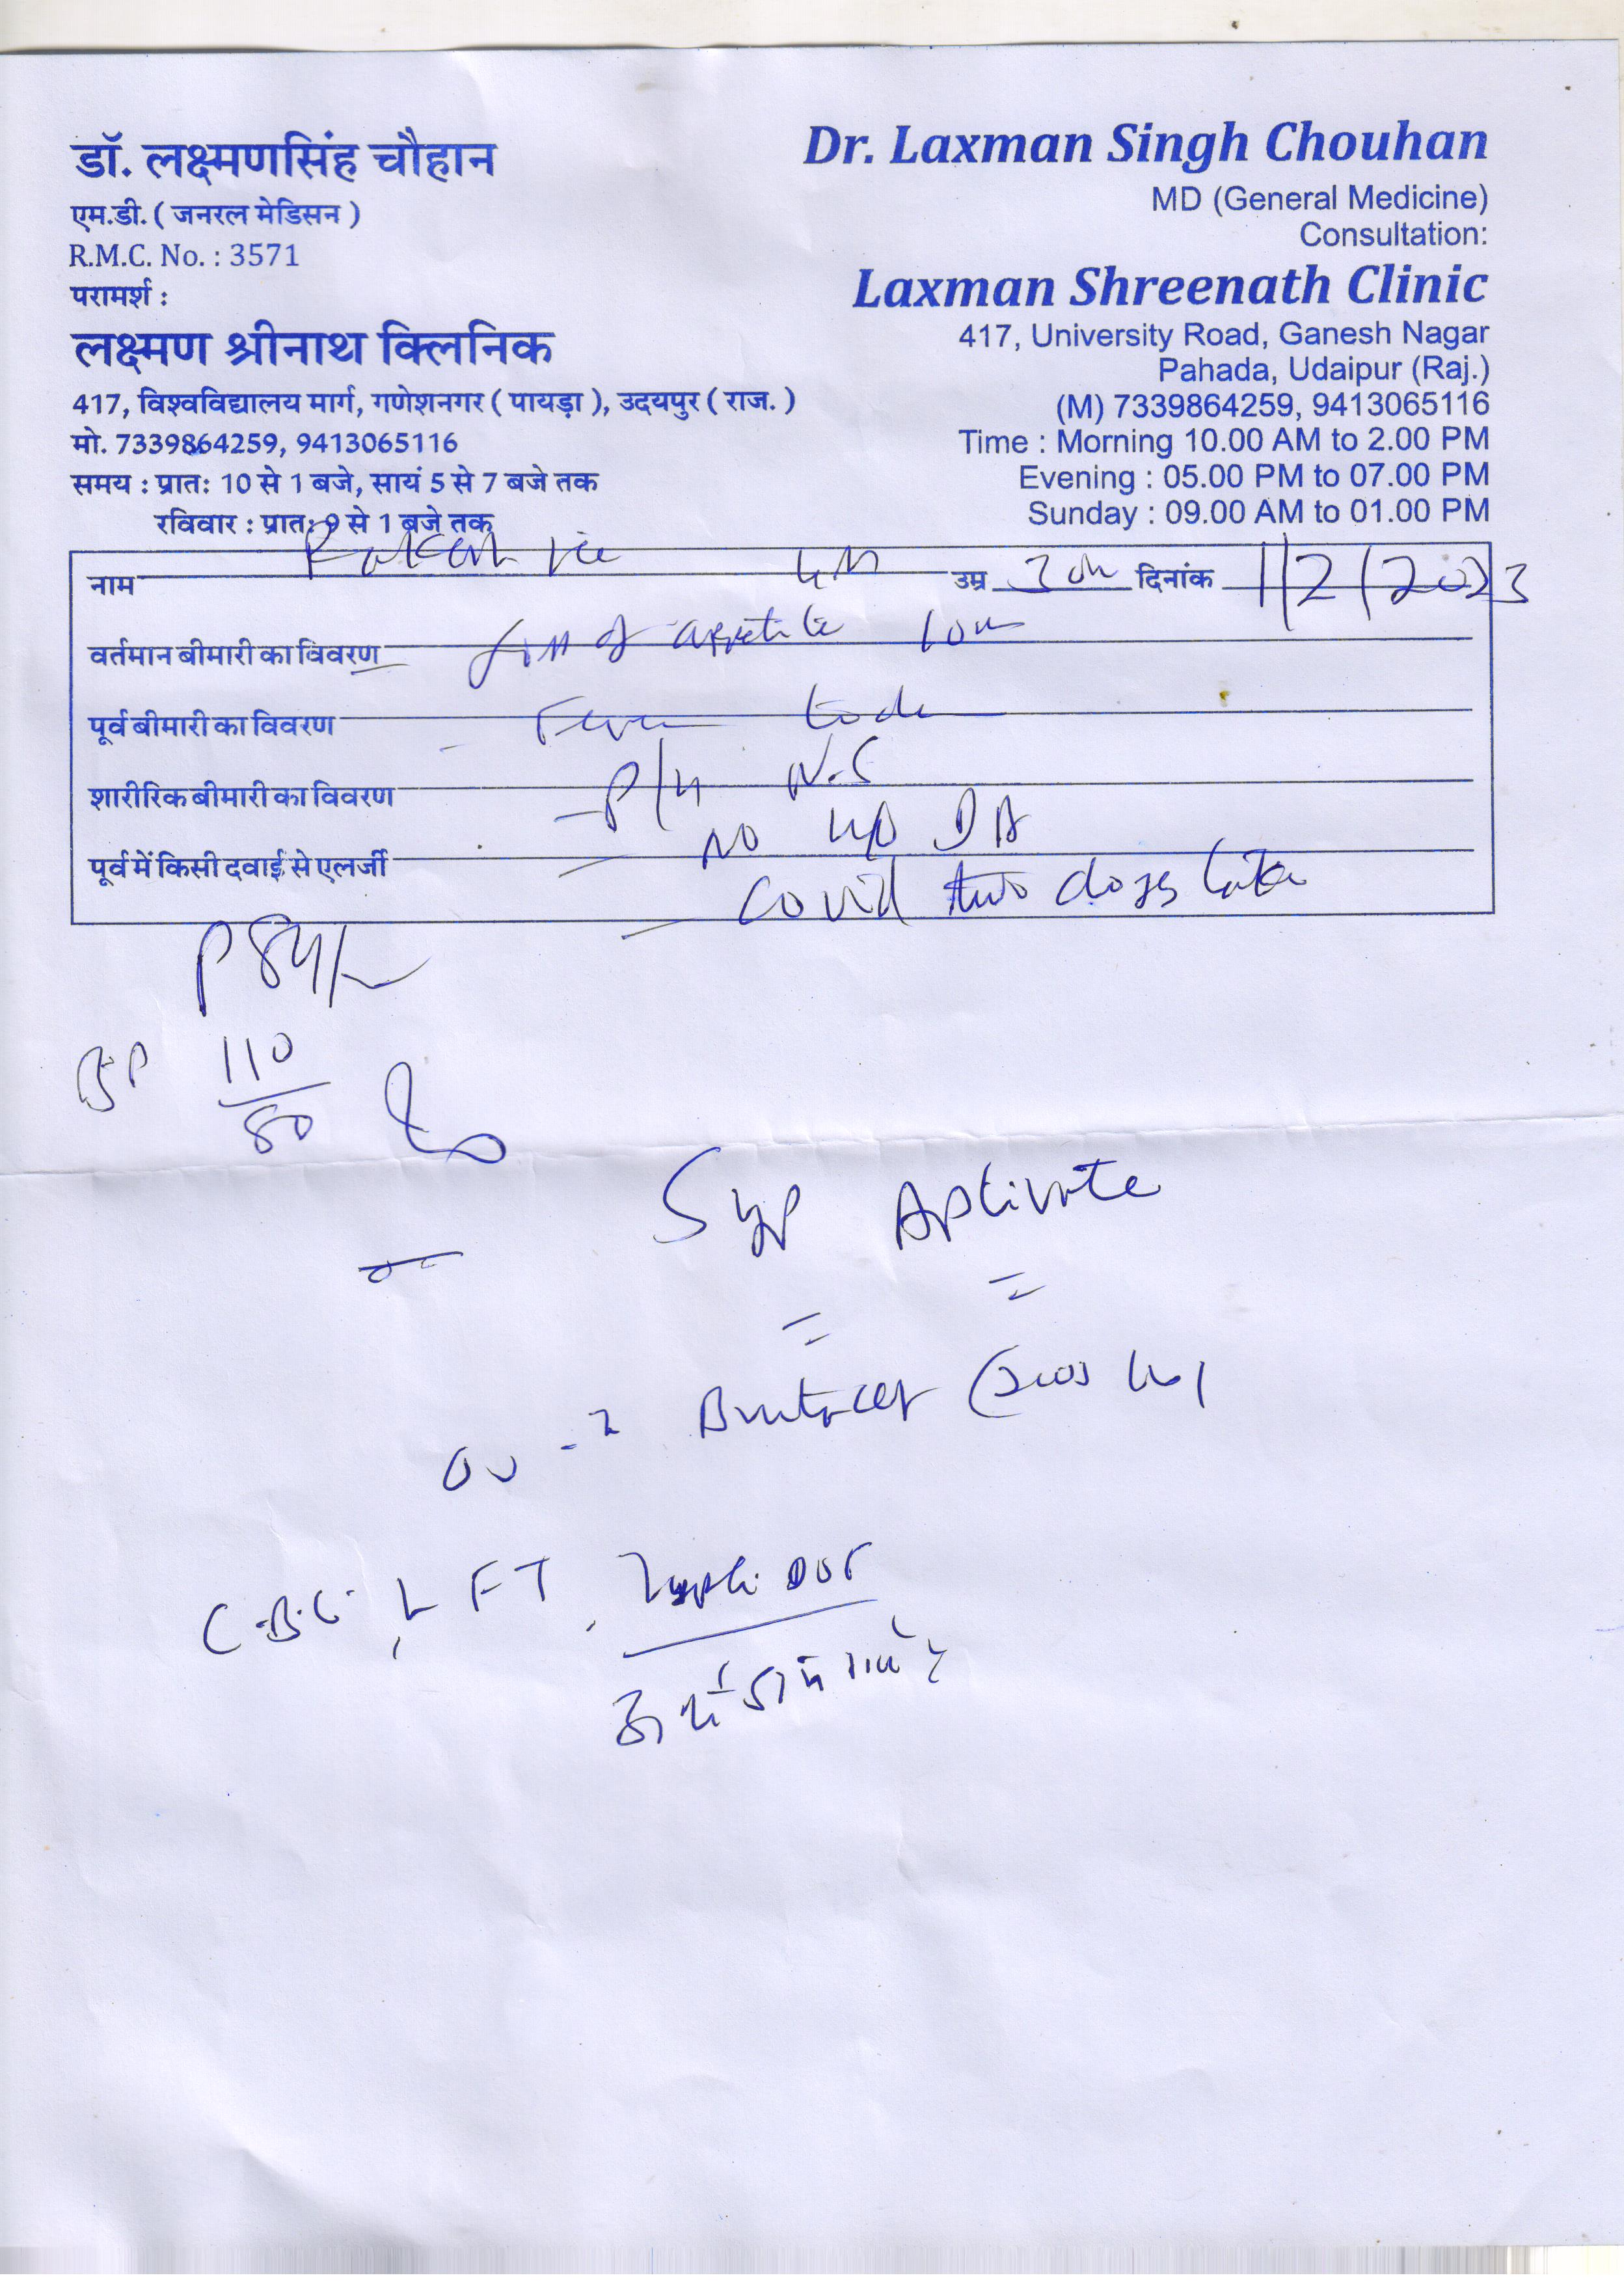 डॉ. लक्ष्मणसिंह चौहान
एम.डी. ( जनरल मेडिसन )
R.M.C. No. : 3571
परामर्श :
लक्ष्मण श्रीनाथ क्लिनिक
417, विश्वविद्यालय मार्ग, गणेशनगर ( पायड़ा ), उदयपुर ( राज. )
मो. 7339864259, 9413065116
समय : प्रातः 10 से 1 बजे, सायं 5 से 7 बजे तक
रविवार : प्रातः 9 से 1 बजे तक
Dr. Laxman Singh Chouhan
MD (General Medicine)
Consultation:
Laxman Shreenath Clinic
417, University Road, Ganesh Nagar
Pahada, Udaipur (Raj.)
(M) 7339864259, 9413065116
Time : Morning 10.00 AM to 2.00 PM
Evening : 05.00 PM to 07.00 PM
Sunday : 09.00 AM to 01.00 PM
नाम उम्र दिनांक 1/2/2023
वर्तमान बीमारी का विवरण of appetite
पूर्व बीमारी का विवरण Fever
शारीरिक बीमारी का विवरण P/H N.S
पूर्व में किसी दवाई से एलर्जी No H/O DA
Covid two doges
P 84/
B.P 110/80
Syp Aptivate
C.B.C., LFT,